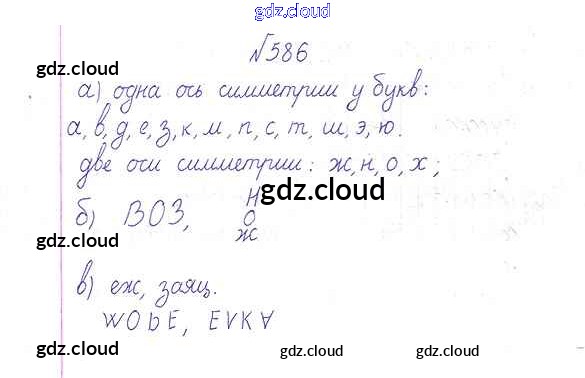 gdz.cloud
№586
gdz.cloud
а) одна ось симметрии у букв:
а, в, д, е, з, к, м, п, с, т, ш, э, ю.
gdz.cloud
две оси симметрии: ж, н, о, х;
gdz.cloud
б) ВОЗ, Н
О
Ж
gdz.cloud
в) еж, заяц.
gdz.cloud
gdz.cloud gdz.cloud gdz.cloud